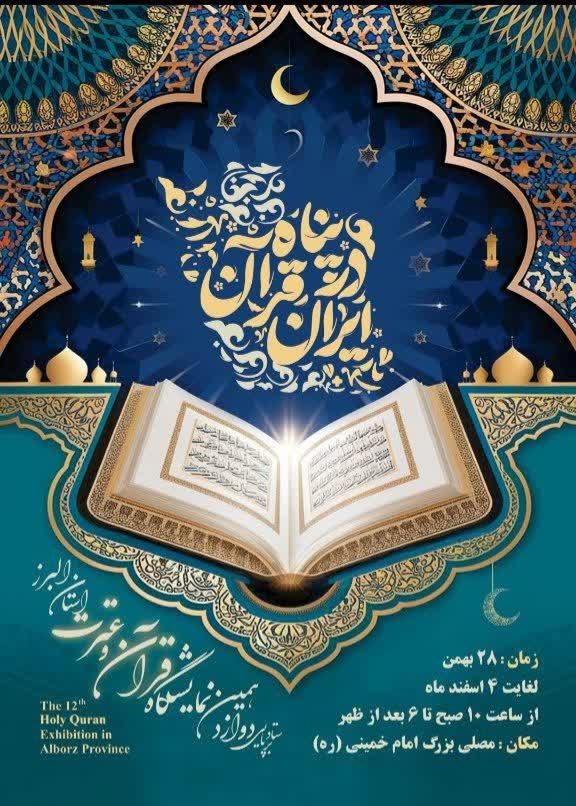 ایران در پناه قرآن
ستاد برپایی
دوازدهمین نمایشگاه
قرآن و عترت
استان البرز
The 12th
Holy Quran
Exhibition in
Alborz Province
زمان : ۲۸ بهمن
لغایت ۴ اسفند ماه
از ساعت ۱۰ صبح تا ۶ بعد از ظهر
مکان : مصلی بزرگ امام خمینی (ره)